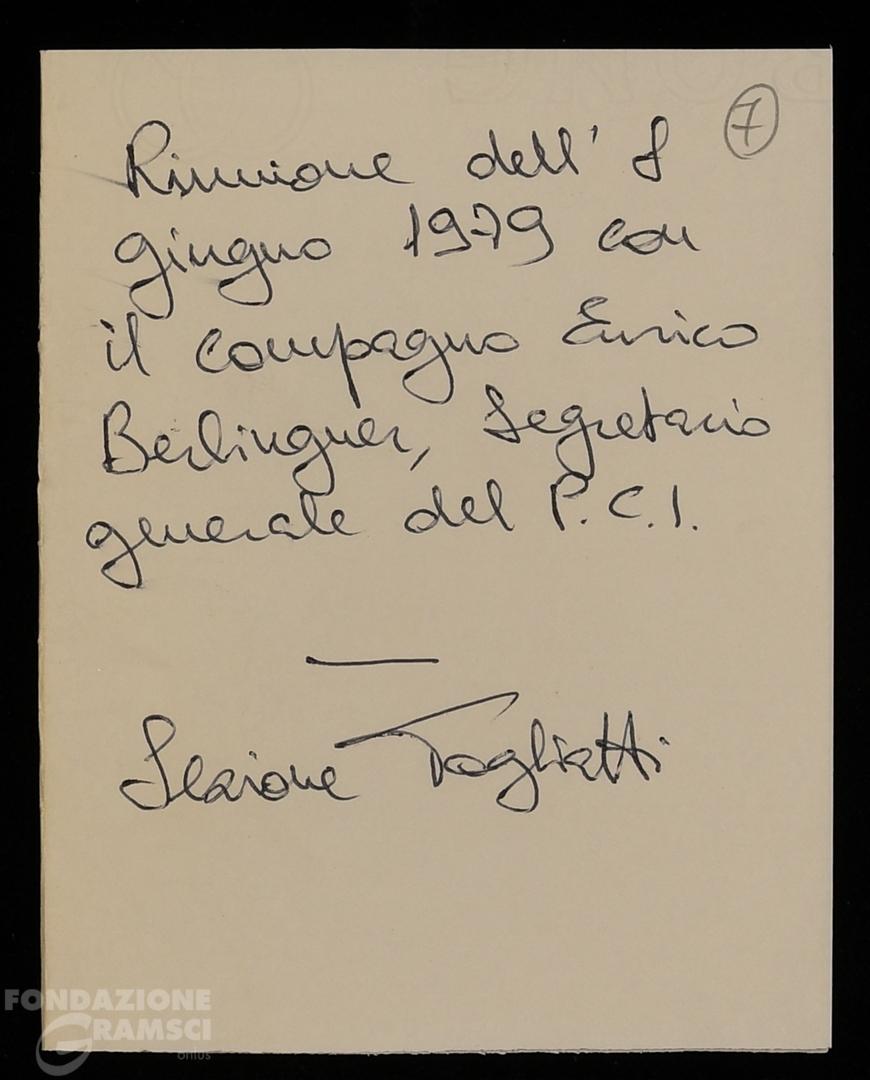 7
Riunione dell' 8
giugno 1979 con
il compagno Enrico
Berlinguer, Segretario
generale del P.C.I.
Sezione Togliatti
FONDAZIONE
GRAMSCI
onlus